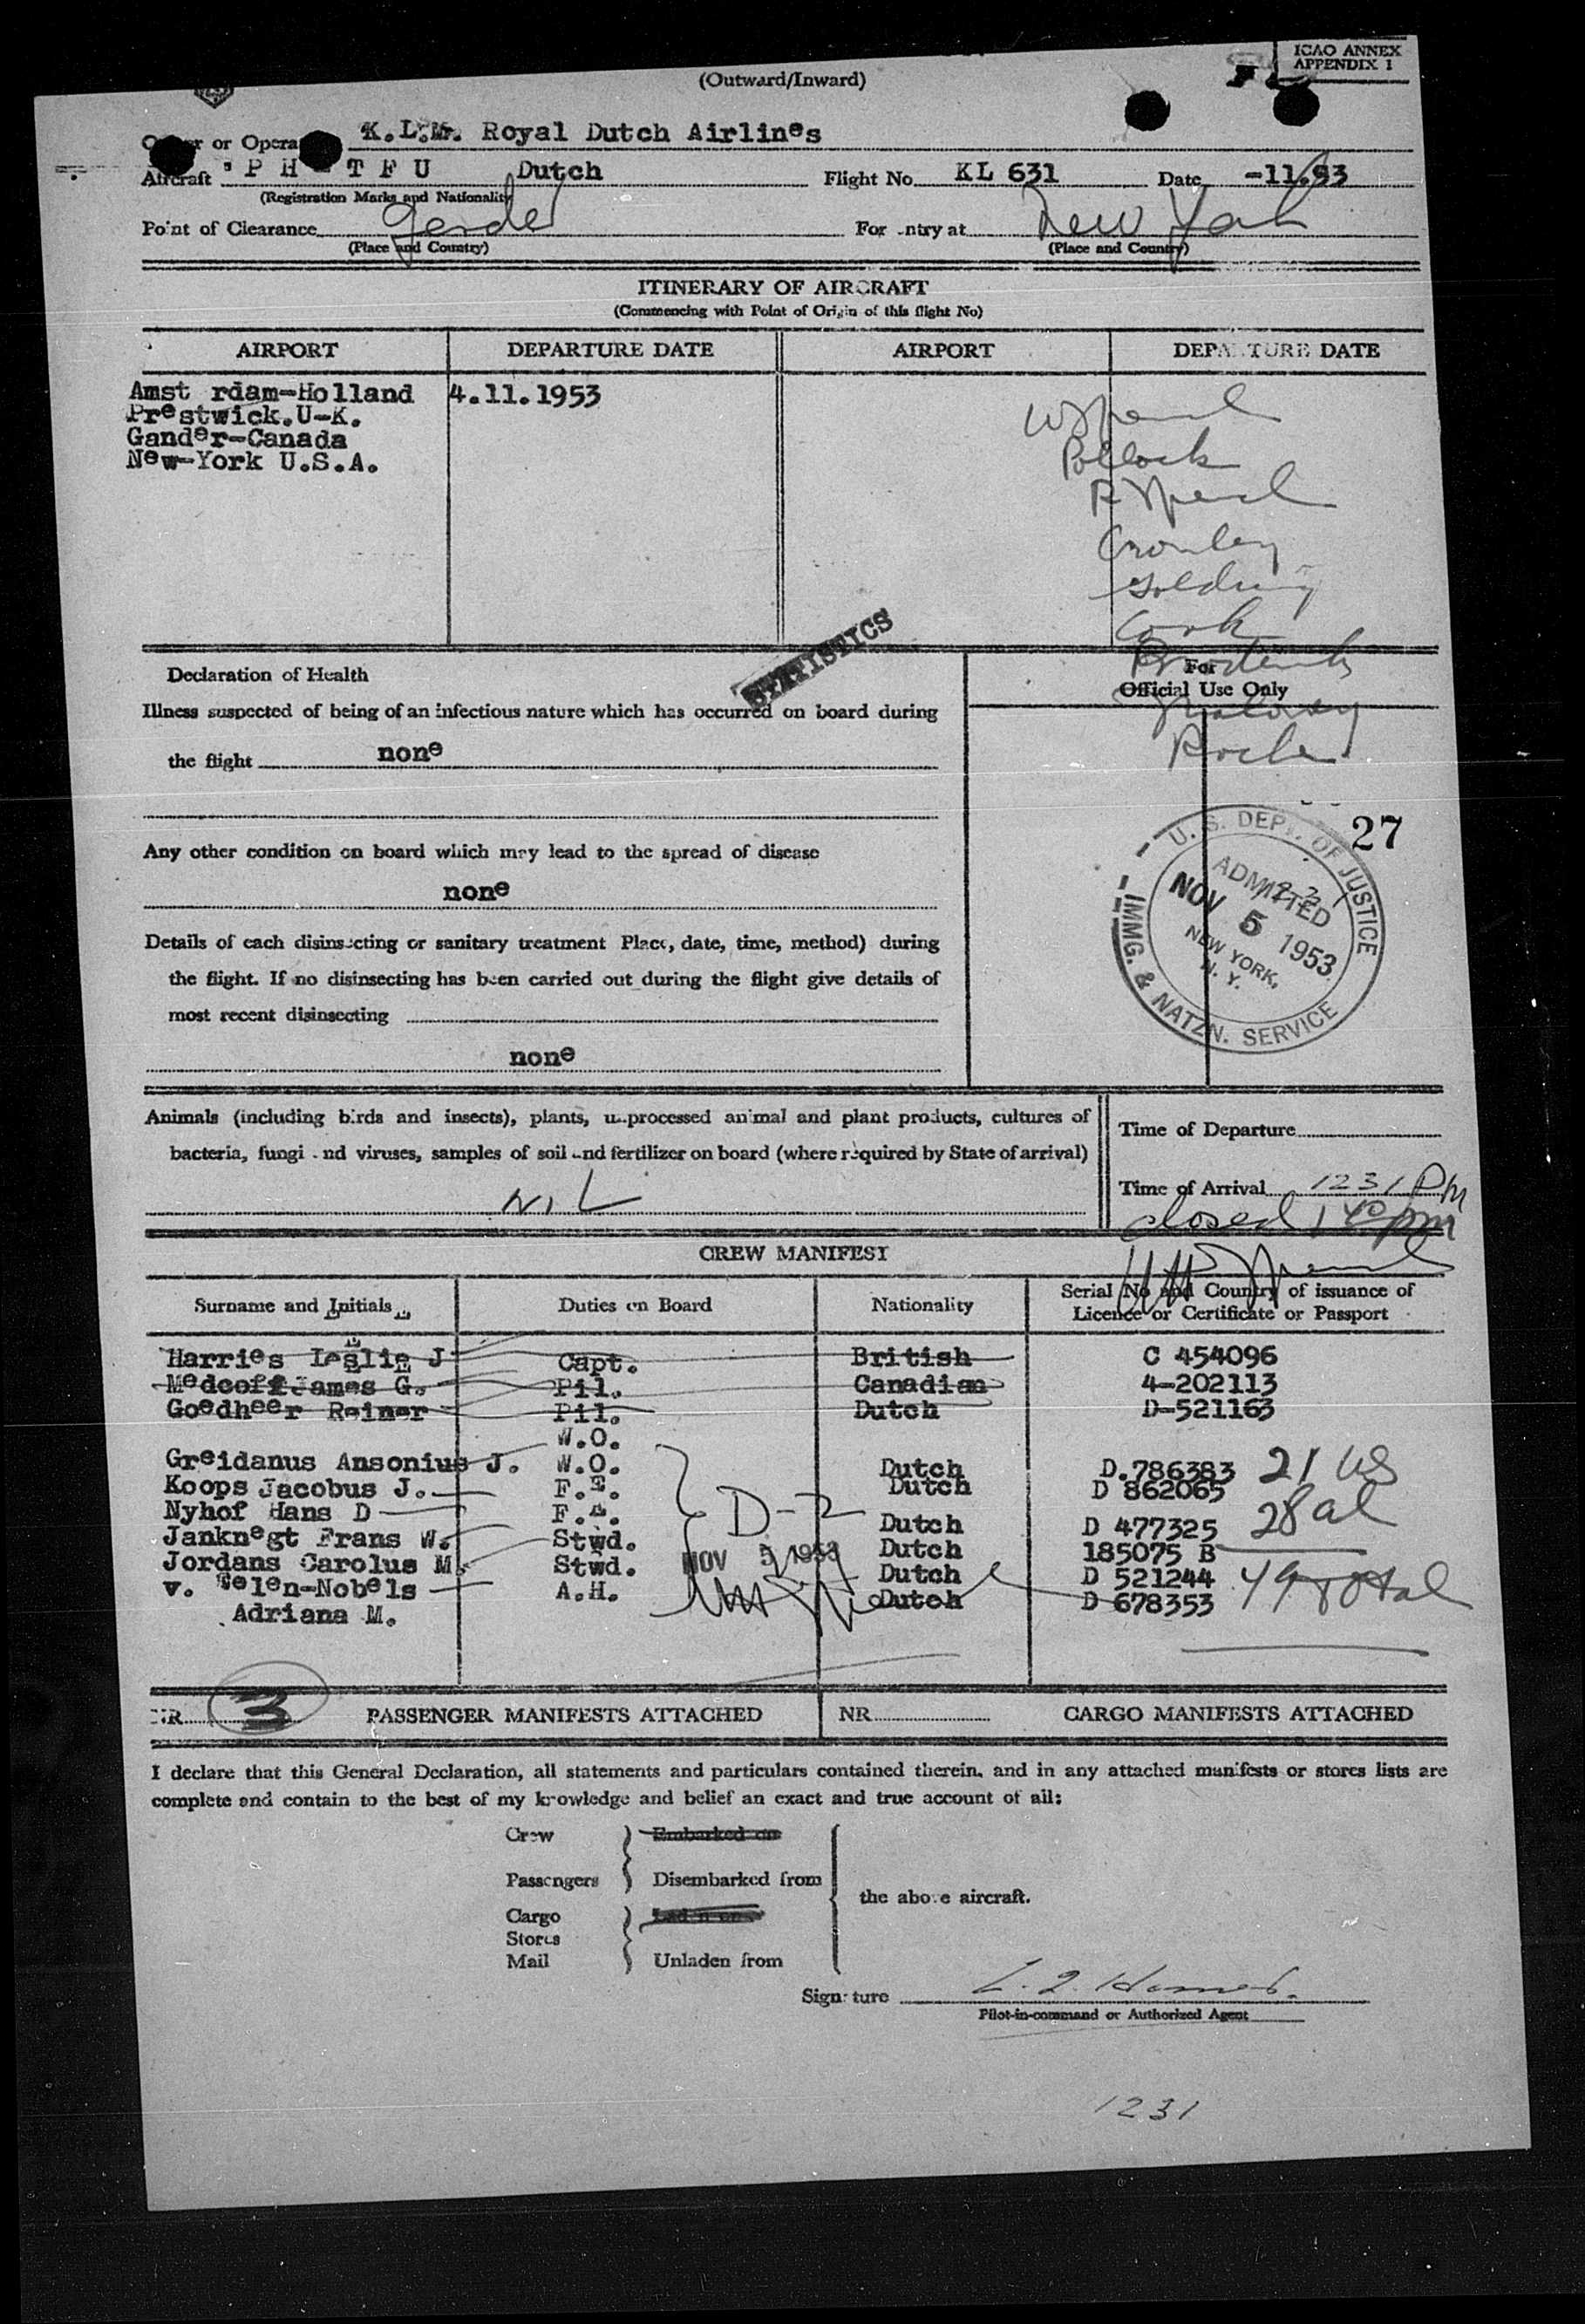 ICAO ANNEX
APPENDIX 1
(Outward/Inward)
or Opera K.L.M. Royal Dutch Airlines
Aircraft P H - T F U Dutch Flight No. KL 631 Date -11.53
(Registration Marks and Nationality)
Point of Clearance Gander For ntry at New York
(Place and Country) (Place and Country)
ITINERARY OF AIRCRAFT
(Commencing with Point of Origin of this flight No)
AIRPORT DEPARTURE DATE AIRPORT DEPARTURE DATE
Amst rdam-Holland 4.11.1953
Prestwick.U-K.
Gander-Canada
New-York U.S.A.
Pollock
Crowley
Golding
Cook
Roche
STATISTICS
Declaration of Health
For
Official Use Only
Illness suspected of being of an infectious nature which has occurred on board during
the flight none
Any other condition on board which may lead to the spread of disease
none
Details of each disinsecting or sanitary treatment Place, date, time, method) during
the flight. If no disinsecting has been carried out during the flight give details of
most recent disinsecting
none
27
U.S. DEPT. OF JUSTICE
ADMITTED
NOV 5 1953
NEW YORK,
N. Y.
IMMG. & NATZN. SERVICE
Animals (including birds and insects), plants, unprocessed animal and plant products, cultures of
bacteria, fungi and viruses, samples of soil and fertilizer on board (where required by State of arrival)
NIL
Time of Departure
Time of Arrival 1231 Pm
closed 1 40 pm
CREW MANIFEST
Surname and Initials Duties on Board Nationality Serial No and Country of issuance of
Licence or Certificate or Passport
Harries Leslie J Capt. British C 454096
Medcoff James G. Pil. Canadian 4-202113
Goedheer Reiner Pil. Dutch D-521163
W.O.
Greidanus Ansonius J. W.O. Dutch D.786383 21 US
Koops Jacobus J. F.E. Dutch D 862065
Nyhof Hans D F.E. Dutch D 477325 28 al
Janknegt Frans W. Stwd. Dutch 185075 B
Jordans Carolus M. Stwd. Dutch D 521244 49 Total
v. Telen-Nobels A.H. Dutch D 678353
Adriana M.
D-2
NOV 5 1953
NR 3 PASSENGER MANIFESTS ATTACHED NR CARGO MANIFESTS ATTACHED
I declare that this General Declaration, all statements and particulars contained therein, and in any attached manifests or stores lists are
complete and contain to the best of my knowledge and belief an exact and true account of all:
Crew Embarked on
Passengers Disembarked from
the above aircraft.
Cargo
Stores
Mail Unladen from
Signature
Pilot-in-command or Authorized Agent
1231